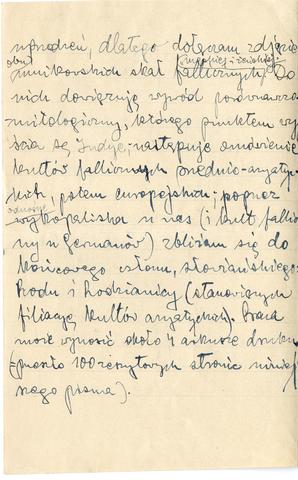 uprzedzeń, dlatego dołączam zdjęcie
obu męskiej i żeńskiej
skał fallicznych. Do
nich dowiązuję wywód porównawczo
mitologiczny, którego punktem wyj
ścia są Indye; następuje omówienie
kultów fallicznych średnio-azyatyc
kich, potem europejskich; poprzez
odnośne
wykopaliska u nas (i kult fallicz
ny u Germanów) zbliżam się do
końcowego członu, słowiańskiego
Rodu i Rodzianicy (stanowiących
filiację kultów azyatyckich). Praca
może wynosić około 4 arkusze druku
(= przeszło 100 zeszytowych stronic niniej
szego pisma).